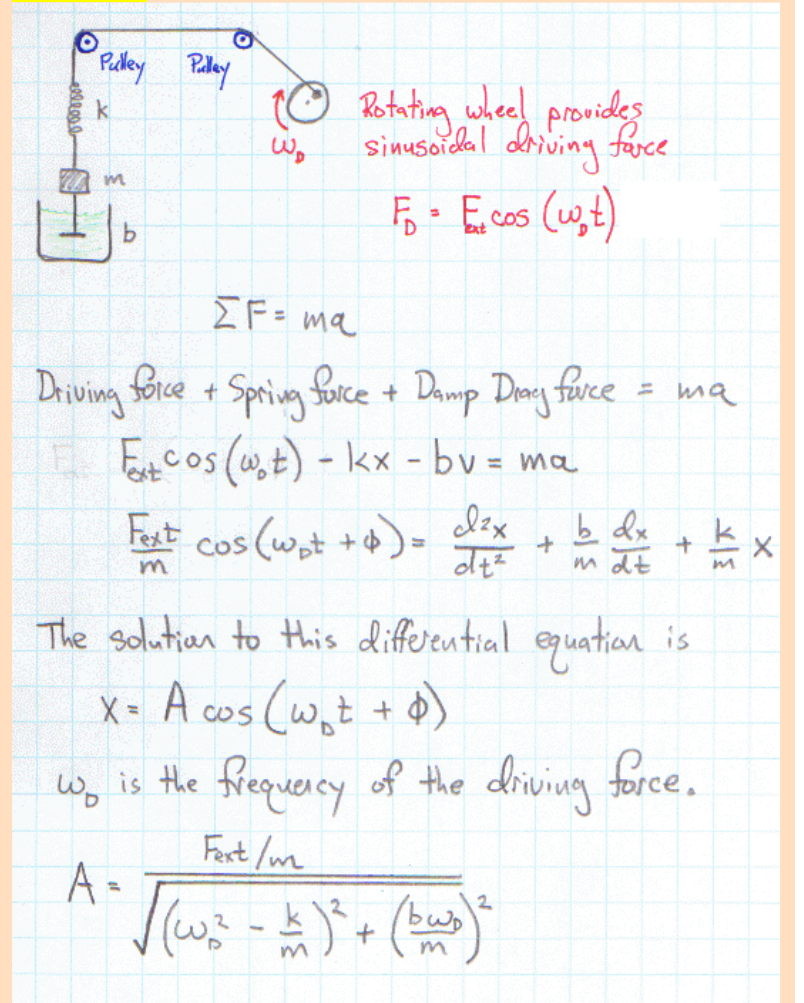 Pulley Pulley
k
ω_D
Rotating wheel provides
sinusoidal driving force
m
F_D = F_ext cos (ω_D t)
b
ΣF = ma
Driving force + Spring force + Damp Drag force = ma
F_ext cos (ω_D t) - kx - bv = ma
F_ext/m cos (ω_D t + φ) = d²x/dt² + b/m dx/dt + k/m x
The solution to this differential equation is
x = A cos (ω_D t + φ)
ω_D is the frequency of the driving force.
A = (F_ext/m) / √((ω_D² - k/m)² + (bω_D/m)²)